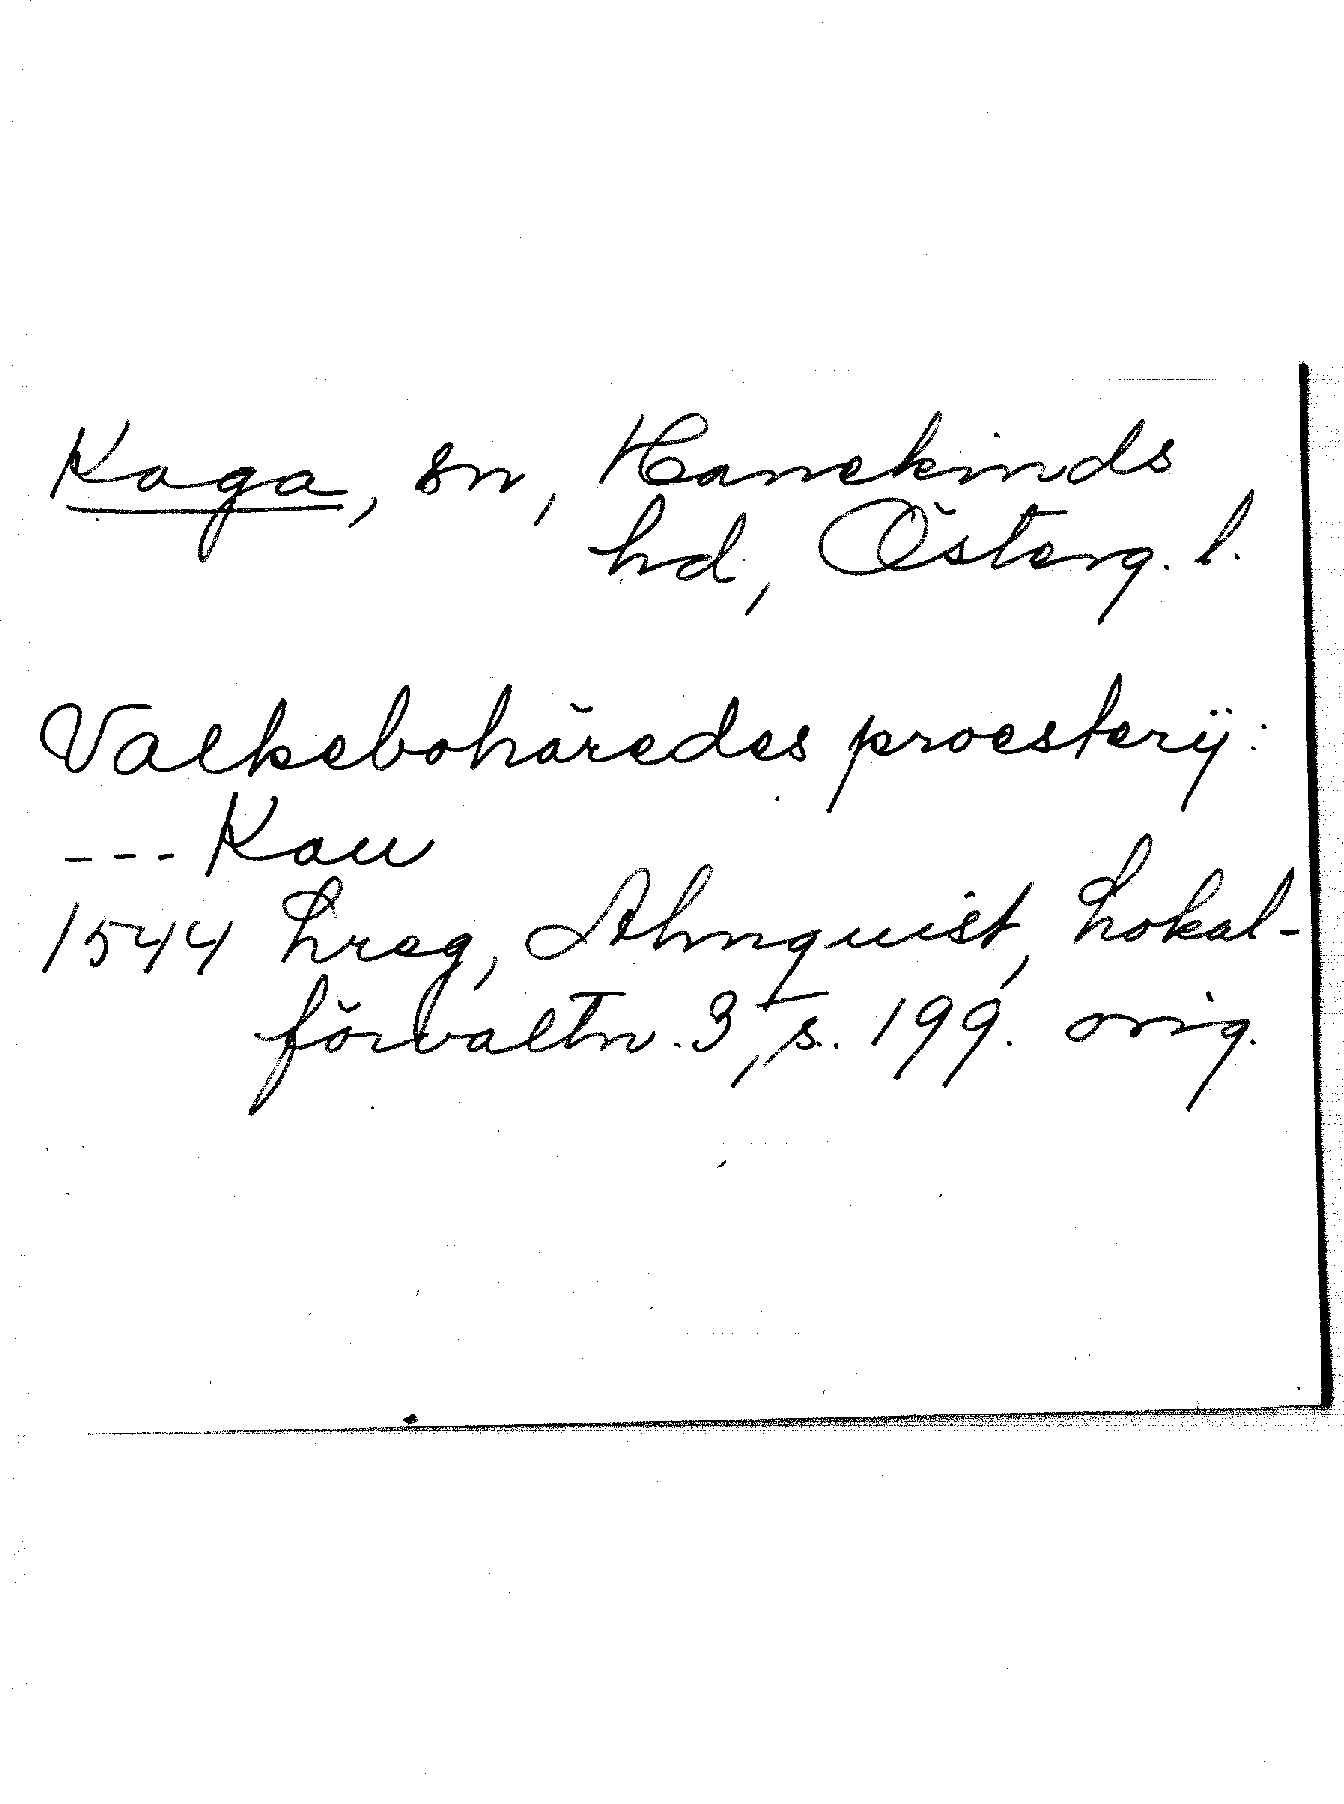 Kaga, sn, Hanekinds
hd, Österg. l.
Valkebohäredes proesterÿ:
--- Kau
1544 Lreg, Almquist, Lokal-
förvaltn. 3, s. 199. orig.